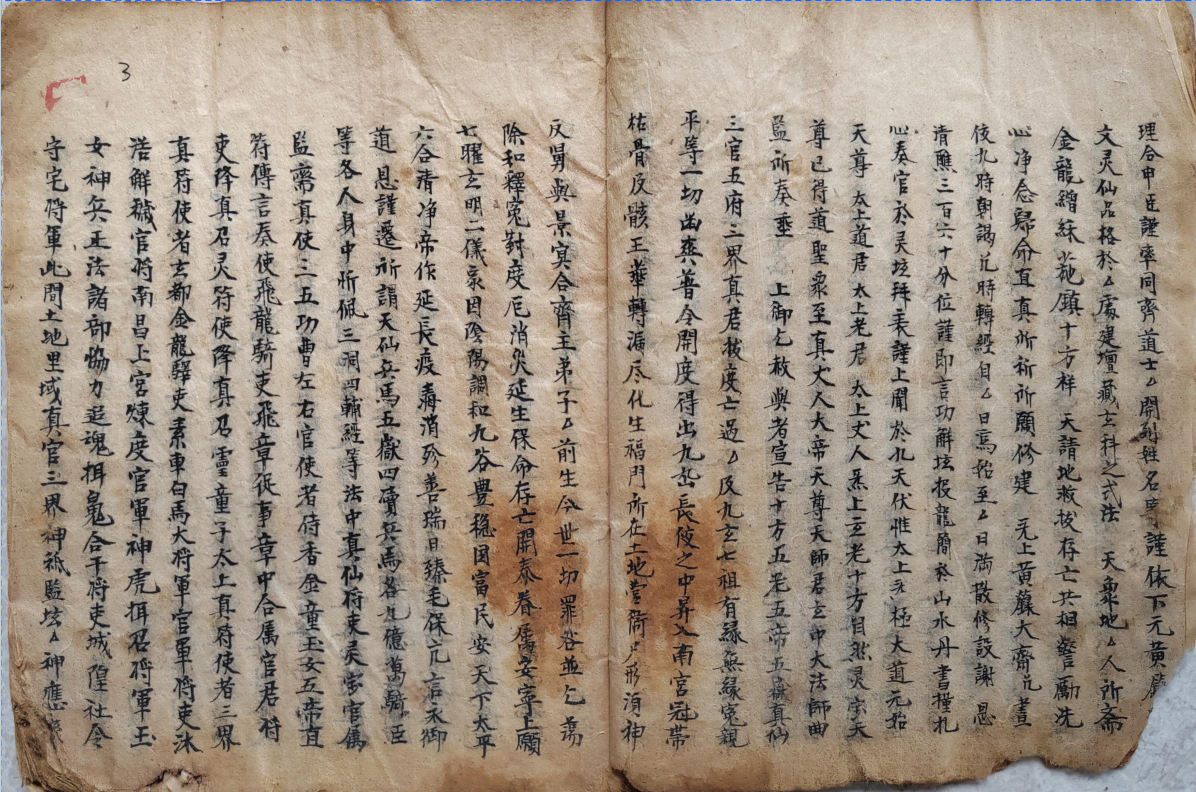 理合申臣謹率同齊道士厶開列姓名謹依下元黄籙
文灵仙品格於厶處建壇藏玄科之式法 天象地厶人所齋
金龍繒綵菀鎮十方祥 天請地救拔存亡共相警勵洗
心净念歸命直真所祈所願修建 无上黄籙大齋几晝
夜九時朝謁几時轉經自厶日爲始至厶日满散修設謝 恩
清醮三百六十分位謹即言功解坛投龍簡於山水丹書撞札
心奏官於灵坛拜表謹上聞於九天伏惟太上无極大道元始
天尊 太上道君 太上老君 太上丈人 無上玄老十方自然灵宗天
尊已得道聖衆至真大人大帝天尊天師君玄中大法師曲
監所奏垂 上御乞赦與者宣告十方五老五帝五嶽真仙
三官五府三界真君拔度亡過厶及九玄七祖有緣無緣寃親
平等一切幽爽普令開度得出九幽長夜之中昇入南宮冠帶
枯骨反骸玉華轉漏尽化生福門所在土地營衛尸形須神
反舅與景㝠合齊主弟子厶前生今世一切罪咎並乞蕩
除和釋寃對度厄消災延生保命存亡開泰眷属安寧上願
七曜玄明二儀象因陰陽調和九谷豊穏国富民安天下太平
六合清净帝作延長疫毒消殄善瑞日臻毛保亢言永御
道 恩謹遷所請天仙兵馬五嶽四瀆兵馬各九億萬騎臣
等各人身中所佩三洞四輔經等法中真仙将吏灵官官属
監斋真使三五功曹左右官使者侍香金童玉女五帝直
符傳言奏使飛龍騎吏飛章從事章中合属官君符
吏降真召灵符使降真召靈童子太上真符使者三界
真苻使者玄都金龍驛吏素車白馬大将軍官軍将吏沐
浩解穢官将南昌上宮煉度官軍神虎揖召将軍玉
女神兵正法諸部協力追魂揖鬼合干将吏城隍社令
守宅将軍此間土地里域真官三界神祗監坛厶神應
3